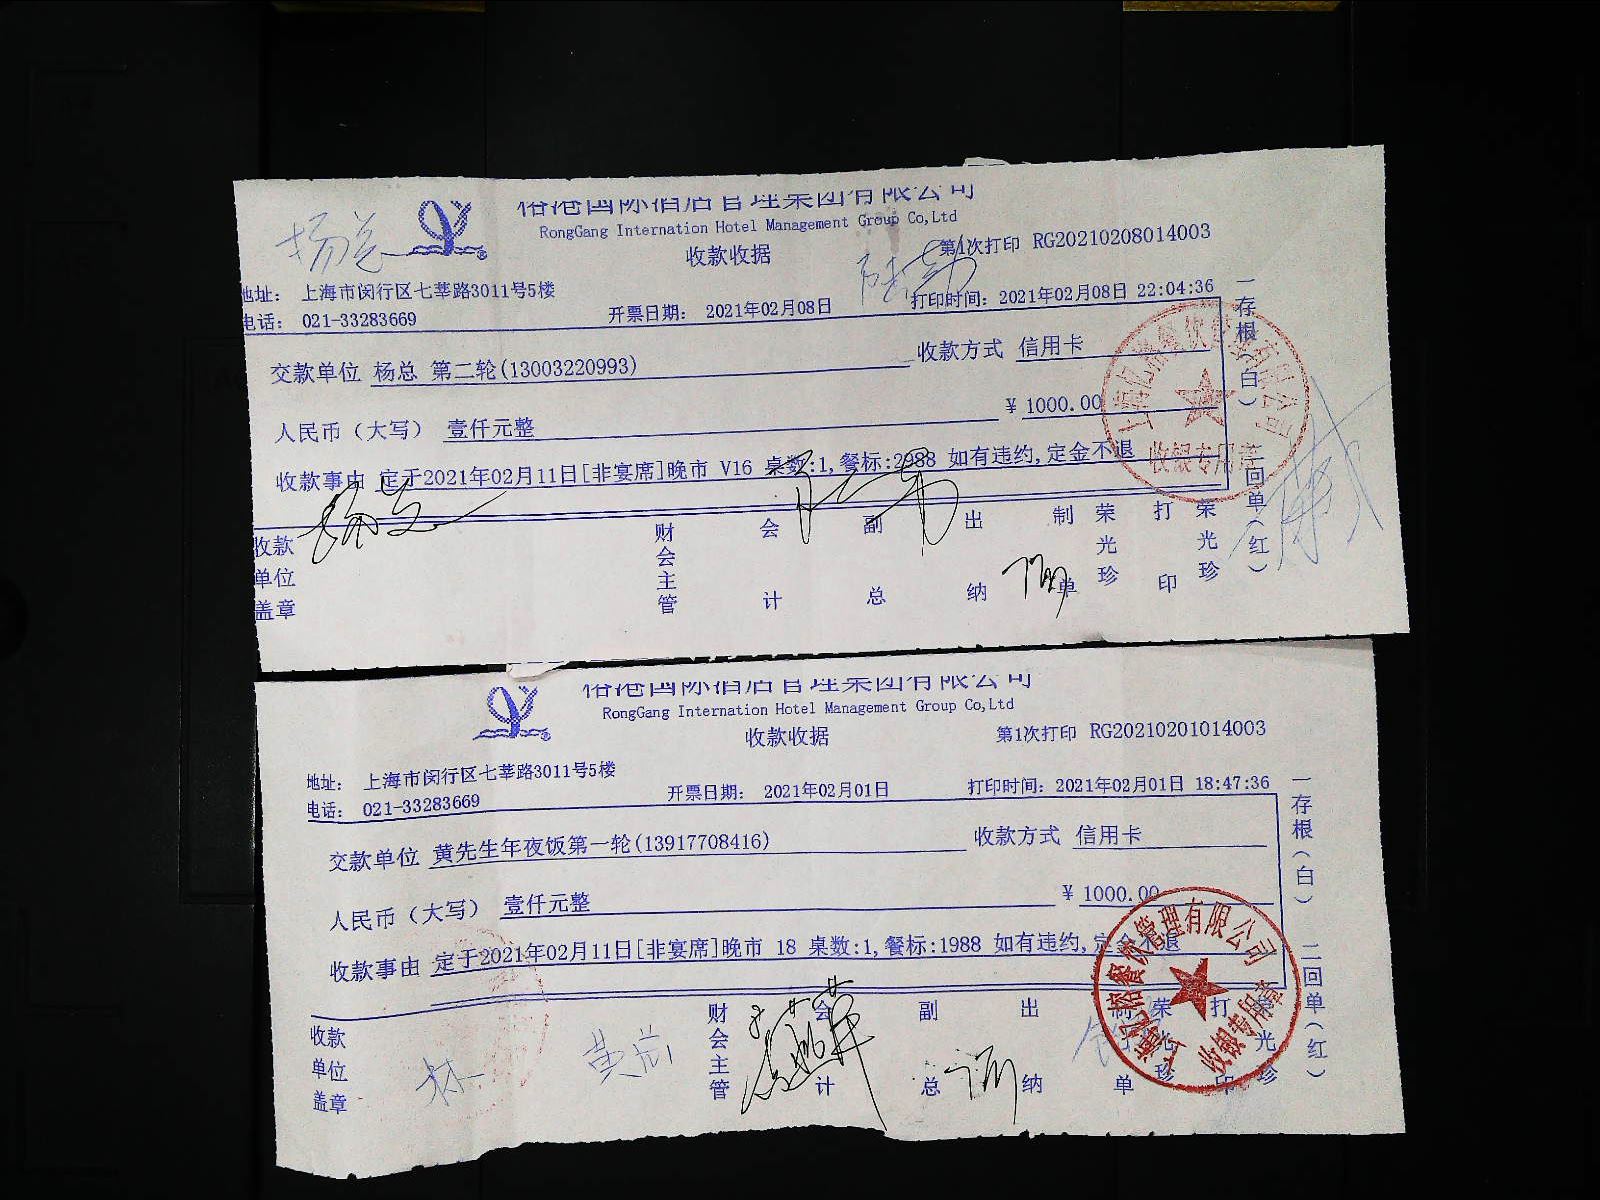 杨总
裕港国际酒店管理集团有限公司
RongGang Internation Hotel Management Group Co,Ltd
收款收据
第1次打印 RG20210208014003
地址： 上海市闵行区七莘路3011号5楼
电话： 021-33283669
开票日期： 2021年02月08日
打印时间：2021年02月08日 22:04:36
交款单位 杨总 第二轮(13003220993)
收款方式 信用卡
人民币（大写） 壹仟元整
¥ 1000.00
收款事由 定于2021年02月11日[非宴席]晚市 V16 桌数:1,餐标:2988 如有违约,定金不退
收款单位盖章
财会主管
会计
副总
出纳
制单
荣光珍
打印
荣光珍
一存根（白） 二回单（红）
收银专用章
裕港国际酒店管理集团有限公司
RongGang Internation Hotel Management Group Co,Ltd
收款收据
第1次打印 RG20210201014003
地址： 上海市闵行区七莘路3011号5楼
电话： 021-33283669
开票日期： 2021年02月01日
打印时间：2021年02月01日 18:47:36
交款单位 黄先生年夜饭第一轮(13917708416)
收款方式 信用卡
人民币（大写） 壹仟元整
¥ 1000.00
收款事由 定于2021年02月11日[非宴席]晚市 18 桌数:1,餐标:1988 如有违约,定金不退
收款单位盖章
财会主管
会计
副总
出纳
制单
荣光珍
打印
荣光珍
一存根（白） 二回单（红）
收银专用章